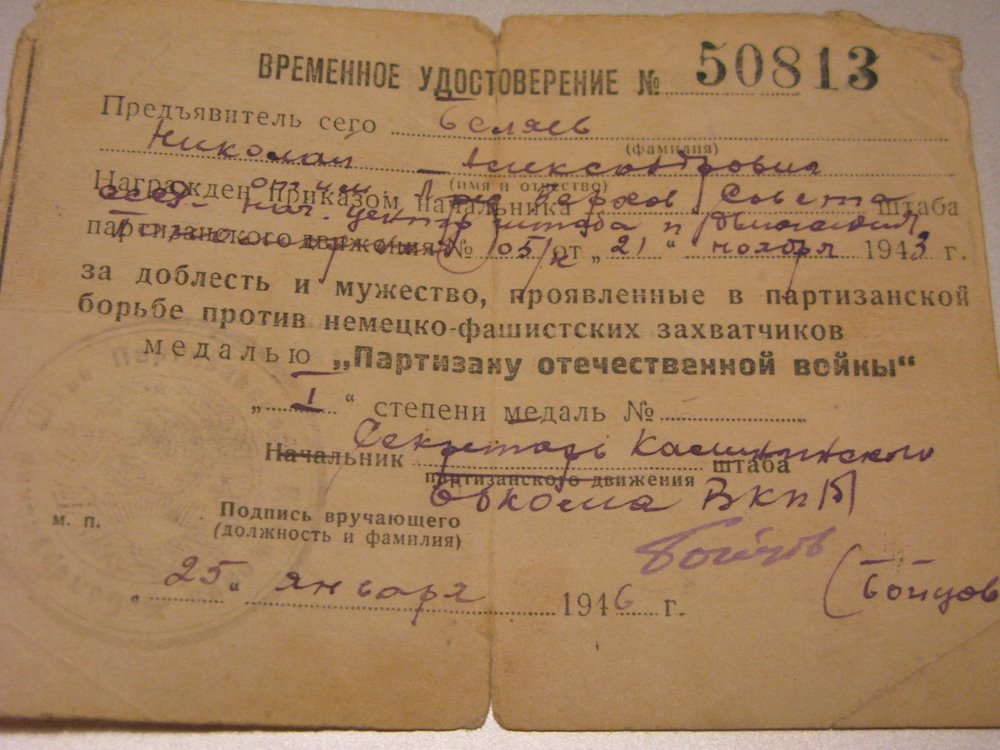 ВРЕМЕННОЕ УДОСТОВЕРЕНИЕ № 50813
Предъявитель сего Беляев
(фамилия)
Николай Александрович
(имя и отчество)
Награжден приказом начальника Верхов. Совета штаба
СССР Нач. центр штаба п движения
партизанского движения № 105/к от „21“ ноября 1943 г.
за доблесть и мужество, проявленные в партизанской
борьбе против немецко-фашистских захватчиков
медалью „Партизану отечественной войны“
„I“ степени медаль №
Секретарь
Начальник штаба
партизанского движения
ВКП/б/
м. п.
Подпись вручающего
(должность и фамилия)
Бойцов
(Бойцов
„25“ января 1946 г.